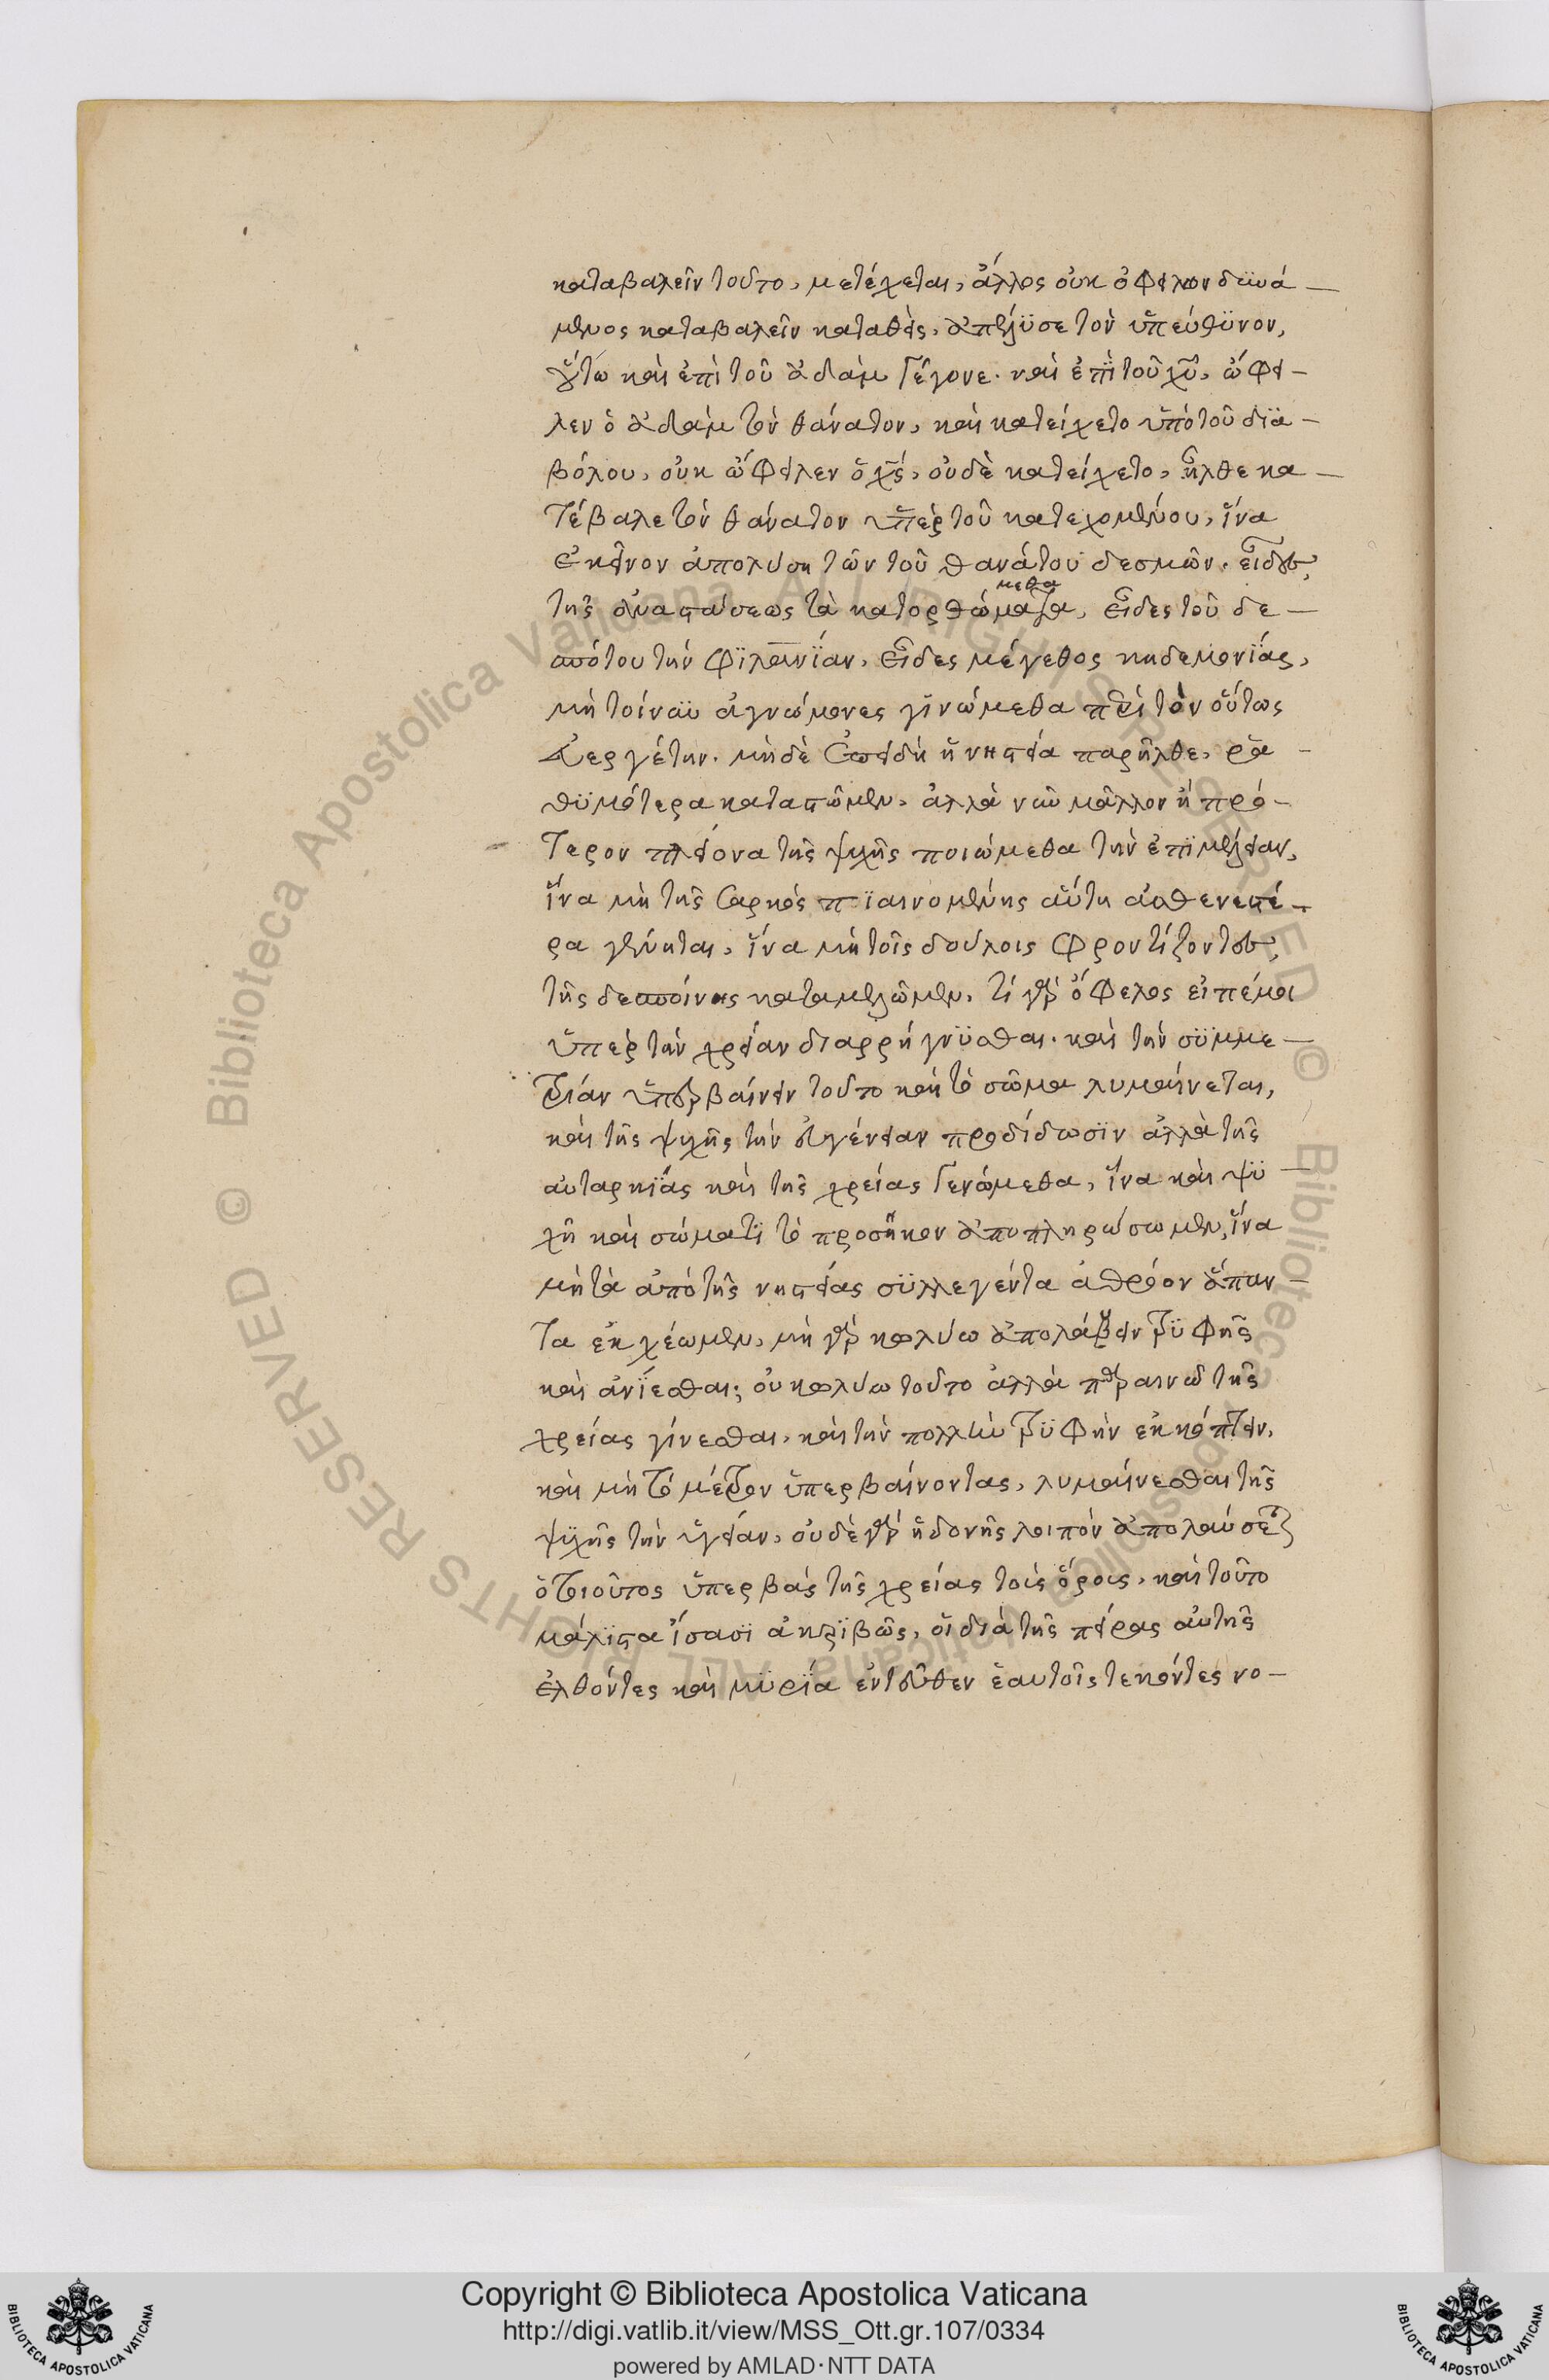 καταβαλεῖν τοῦτο, μετέχεται, ἄλλος οὐκ ὀφείλων δϋνά
μενος καταβαλεῖν καταθεὶς, ἀπέλϋσε τὸν ὑπεύθϋνον,
οὕτω καὶ ἐπὶ τοῦ ἀδὰμ γέγονε. καὶ ἐπῒ τοῦ χυ̅, ὤφει
λεν ὁ ἀδὰμ τὸν θάνατον, καὶ κατείχετο ὑπὸ τοῦ δϊα
βόλου, οὐκ ὤφειλεν ὁ χς̅, οὐδὲ κατείχετο, ἦλθε κα
τέβαλε τὸν θάνατον ὑπὲρ τοῦ κατεχομένου, ἵνα
ἐκεῖνον ἀπολύση τῶν τοῦ θανάτου δεσμῶν. εἶδες
τῆς ἀναστάσεως τὰ κατορθώματα, εἶδες τοῦ δε
μεθα
σπότου τὴν φϊλανι̅ΐαν, εἶδες μέγεθος κηδεμονΐας,
μὴ τοίνϋν ἀγνώμονες γϊνώμεθα περὶ τὸν οὕτως
εὐεργέτην. μὴδὲ ἐπειδὴ ἡ νηστεία παρῆλθε, ῥα
θϋμότερα καταστῶμεν, ἀλλὰ νῦν μᾶλλον ἢ πρό
τερον πλείονα τῆς ψυχῆς ποιώμεθα τὴν ἐπϊμέλειαν,
ἵνα μὴ τῆς σαρκὸς πϊαινομένης αὕτη ἀσθενεστέ
ρα γένηται, ἵνα μὴ τοῖς δούλοις φροντίζοντες,
τῆς δεσποίνης καταμελῶμεν. τί γὰρ ὄφελος εἰπέμοι
ὑπὲρ τὴν χρείαν διαρρήγνϋσθαι. καὶ τὴν σϋμμε
τρίαν ὑπερβαίνειν τοῦτο καὶ τὸ σῶμα λυμαίνεται,
καὶ τῆς ψυχῆς τὴν εὐγένειαν προδίδωσϊν ἀλλὰ τῆς
αὐταρκΐας καὶ τῆς χρείας γενώμεθα, ἵνα καὶ ψϋ
χῆ καὶ σώματϊ τὸ προσῆκον ἀποπληρώσωμεν, ἵνα
μὴ τὰ ἀπὸ τῆς νηστείας σϋλλεγέντα ἀθρόον ἅπαν
τα ἐκχέωμεν, μὴ γὰρ κολύω ἀπολάβειν τρϋφῆς
καὶ ἀνΐεσθαι; οὐ κολύω τοῦτο ἀλλὰ παραινῶ τῆς
χρείας γίνεσθαι, καὶ τὴν πολλὴν τρϋφὴν ἐκκόπτειν,
καὶ μὴ τὸ μέτρον ὑπερβαίνοντας, λυμαίνεσθαι τῆς
ψϋχῆς τὴν ὑγείαν, οὐδὲ γὰρ ἡδονῆς λοιπὸν ἀπολαύσεται
ὁ τοιοῦτος ὑπερβὰς τῆς χρείας τοὺς ὅρους, καὶ τοῦτο
μάλϊστα ἴσασϊ ἀκρϊβῶς, οἵ διὰ τῆς πείρας αὐτῆς
ἐλθόντες καὶ μϋρΐα ἐντεῦθεν ἑαυτοῖς τεκόντες νο
Copyright © Biblioteca Apostolica Vaticana
http://digi.vatlib.it/view/MSS_Ott.gr.107/0334
powered by AMLAD·NTT DATA